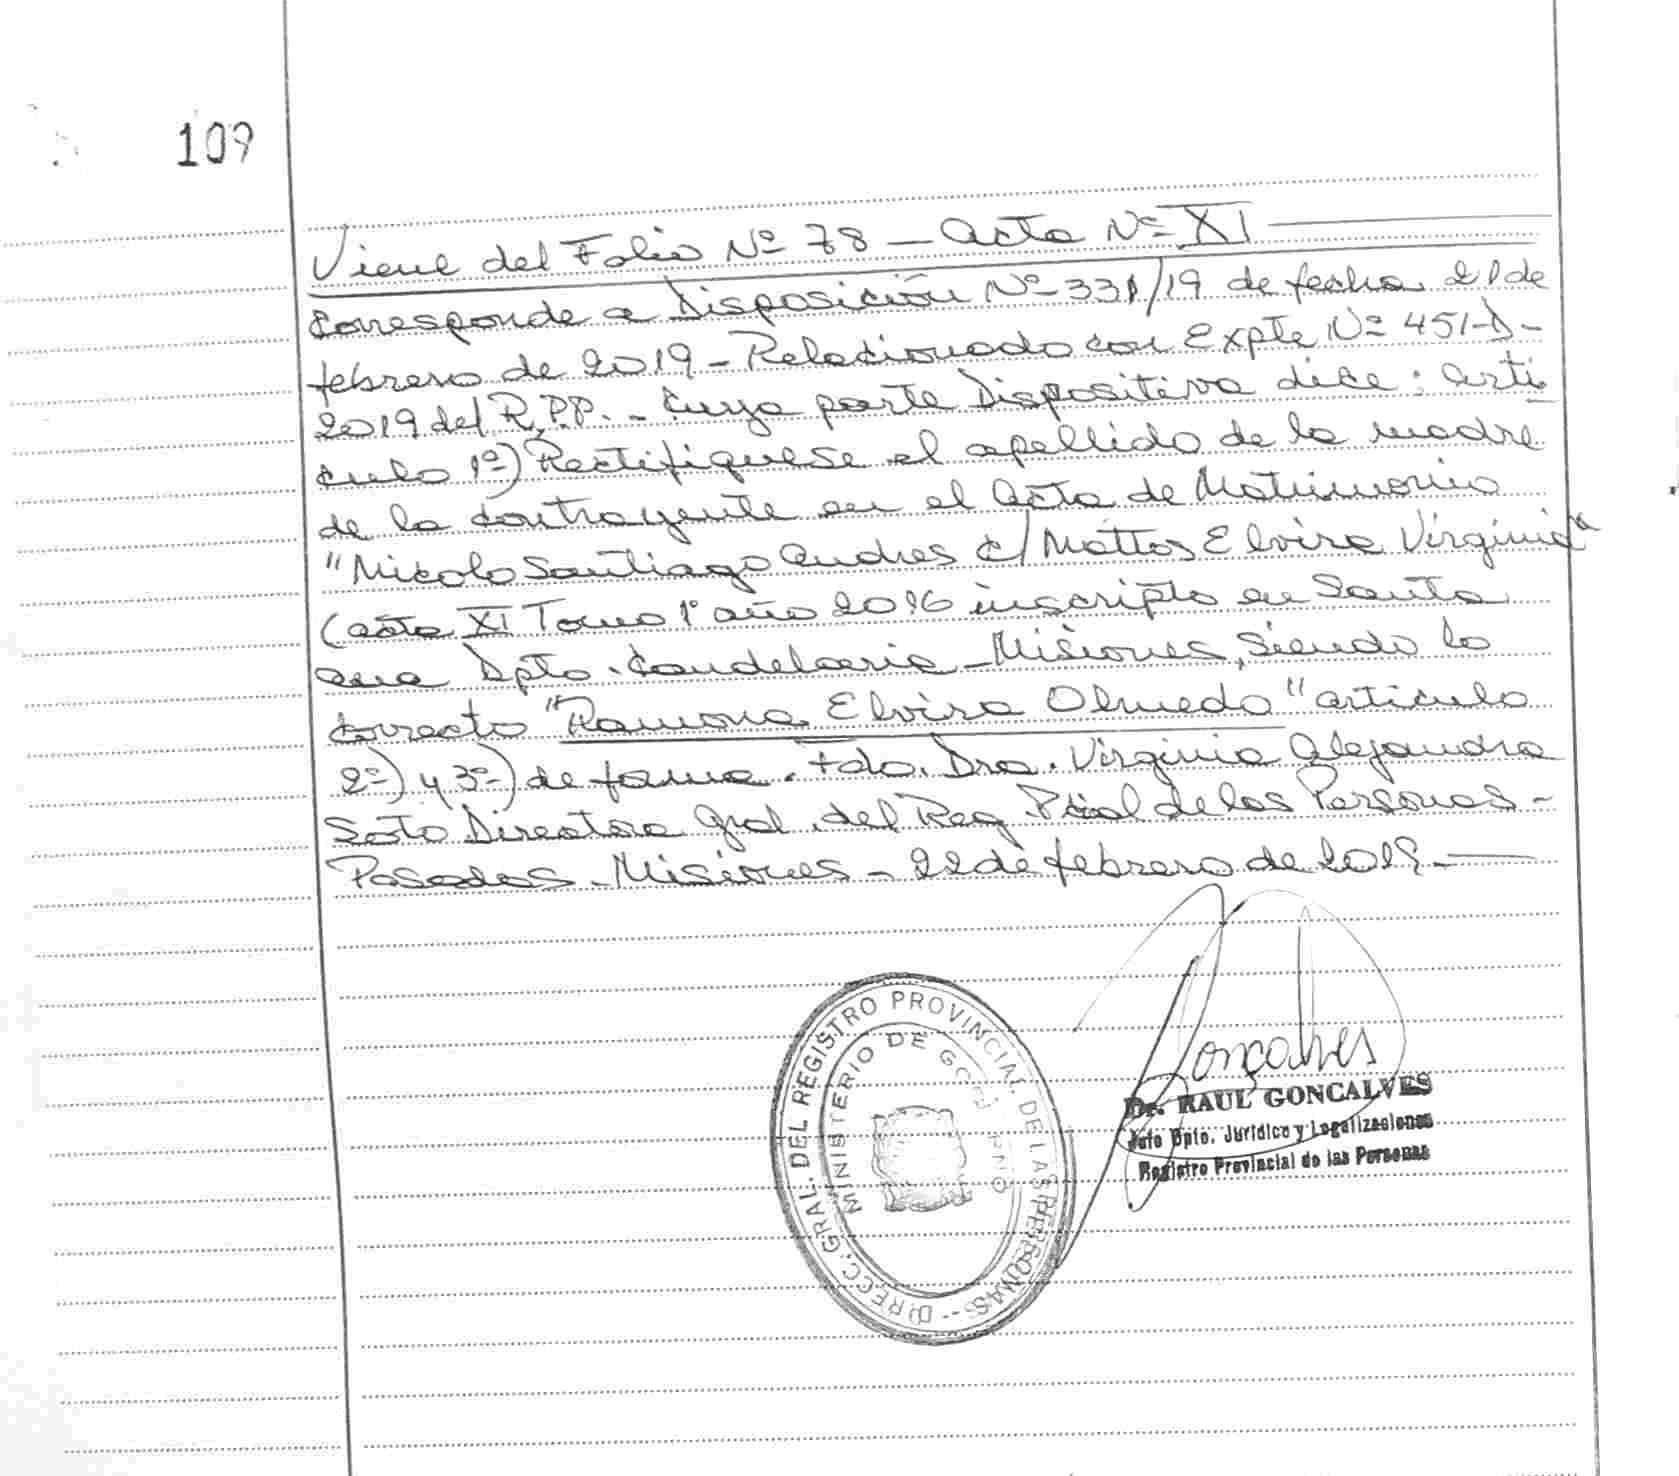 109
Viene del Folio Nº 78 - Acta Nº XI
Corresponde a Disposición Nº 331/19 de fecha 21 de
febrero de 2019 - Relacionado con Expte Nº 451-D-
2019 del R.P.P. - Cuya parte Dispositiva dice: Arti
culo 1º) Rectifiquese el apellido de la madre
de la contrayente en el Acta de Matrimonio
"Micolo Santiago Andres c/ Mattos Elvira Virginia
(acta XI Tomo 1º año 2016 inscripto en Santa
Ana Dpto. Candelaria - Misiones, siendo lo
correcto "Ramona Elvira Olmedo" articulo
2º) y 3º) de forma. Fdo. Dra. Virginia Alejandra
Soto Directora Gral. del Reg. Pcial de las Personas -
Posadas - Misiones - 22 de febrero de 2019. -
DIRECC. GRAL. DEL REGISTRO PROVINCIAL DE LAS PERSONAS -
MINISTERIO DE GOBIERNO
Gonçalves
Dr. RAUL GONCALVES
Jefe Dpto. Jurídico y Legalizaciones
Registro Provincial de las Personas